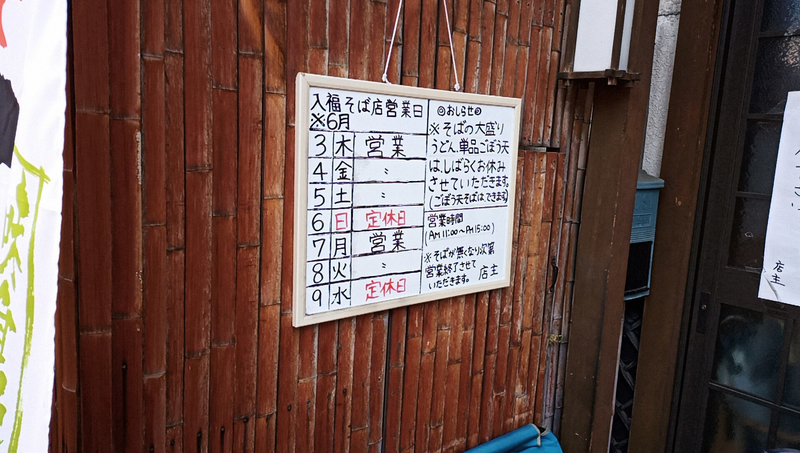 入福そば店営業日
※6月
3 木 営業
4 金 〃
5 土 〃
6 日 定休日
7 月 営業
8 火 〃
9 水 定休日
◎おしらせ◎
※そばの大盛り
うどん、単品ごぼう天
は、しばらくお休み
させていただきます。
(ごぼう天そばは、できます)
営業時間
(AM11:00～PM15:00)
※そばが無くなり次第
営業終了させて
いただきます。 店主
店主